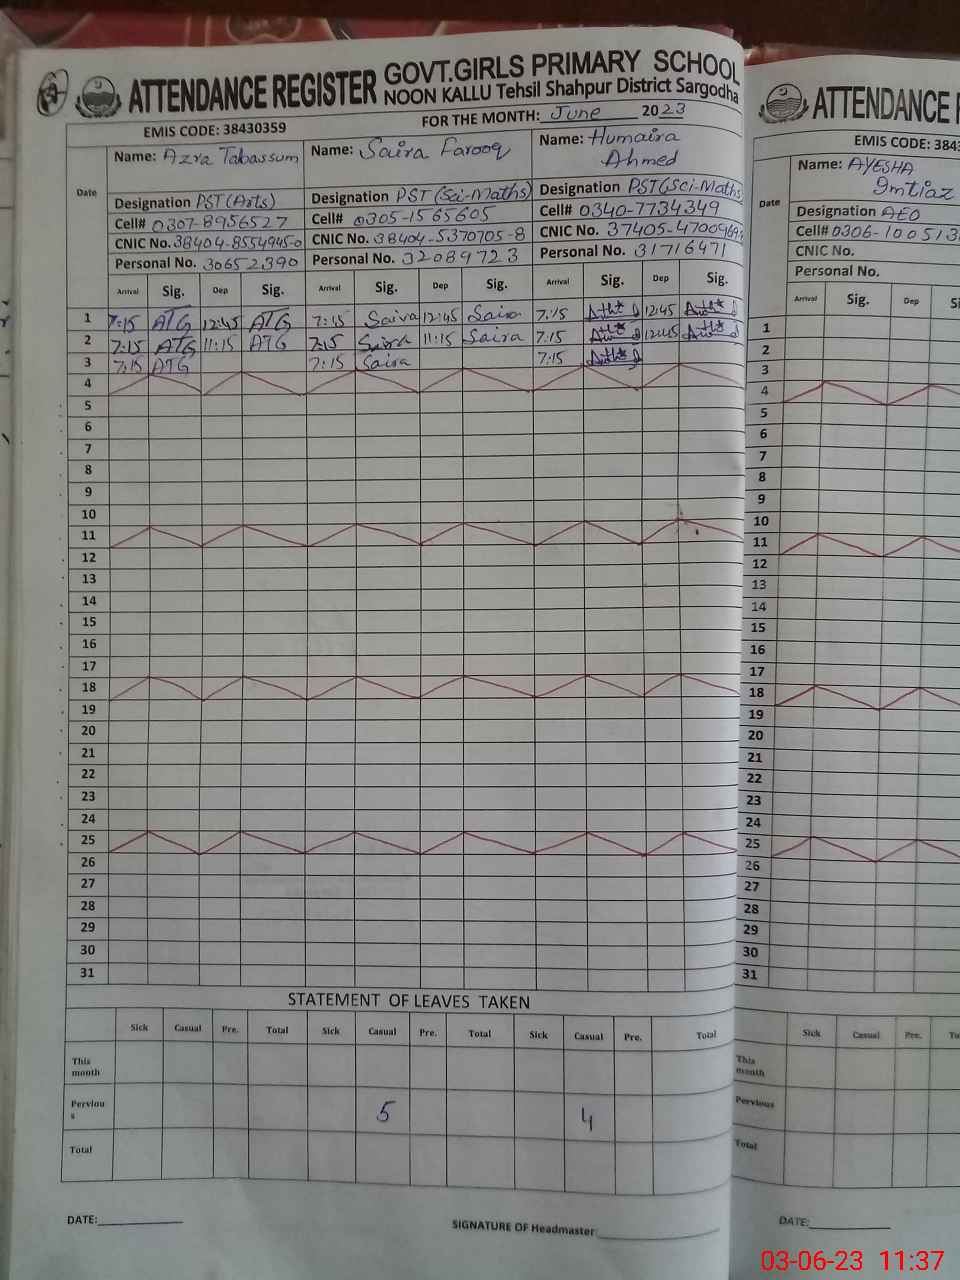 ATTENDANCE REGISTER GOVT.GIRLS PRIMARY SCHOOL
NOON KALLU Tehsil Shahpur District Sargodha
EMIS CODE: 38430359 FOR THE MONTH: June 2023
Date Name: Azra Tabassum Name: Saira Farooq Name: Humaira Ahmed
Designation PST(Arts) Designation PST(Sci-Maths) Designation PST(Sci-Maths)
Cell# 0307-8956527 Cell# 0305-1565605 Cell# 0340-7734349
CNIC No. 38404-8554945-0 CNIC No. 38404-5370705-8 CNIC No. 37405-4700969
Personal No. 30652390 Personal No. 32089723 Personal No. 31716471
Arrival Sig. Dep Sig. Arrival Sig. Dep Sig. Arrival Sig. Dep Sig.
1 7:15 ATG 12:45 ATG 7:15 Saira 12:45 Saira 7:15 12:45
2 7:15 ATG 11:15 ATG 7:15 Saira 11:15 Saira 7:15
3 7:15 ATG 7:15 Saira 7:15
4
5
6
7
8
9
10
11
12
13
14
15
16
17
18
19
20
21
22
23
24
25
26
27
28
29
30
31
STATEMENT OF LEAVES TAKEN
Sick Casual Pre. Total Sick Casual Pre. Total Sick Casual Pre. Total
This month
Perviou
s 5 4
Total
DATE: SIGNATURE OF Headmaster
ATTENDANCE
EMIS CODE: 384
Date Name: AYESHA
Imtiaz
Designation AEO
Cell# 0306-10051
CNIC No.
Personal No.
Arrival Sig. Dep
1
2
3
4
5
6
7
8
9
10
11
12
13
14
15
16
17
18
19
20
21
22
23
24
25
26
27
28
29
30
31
Sick Casual Pre.
This month
Pervious
Total
DATE:
03-06-23 11:37